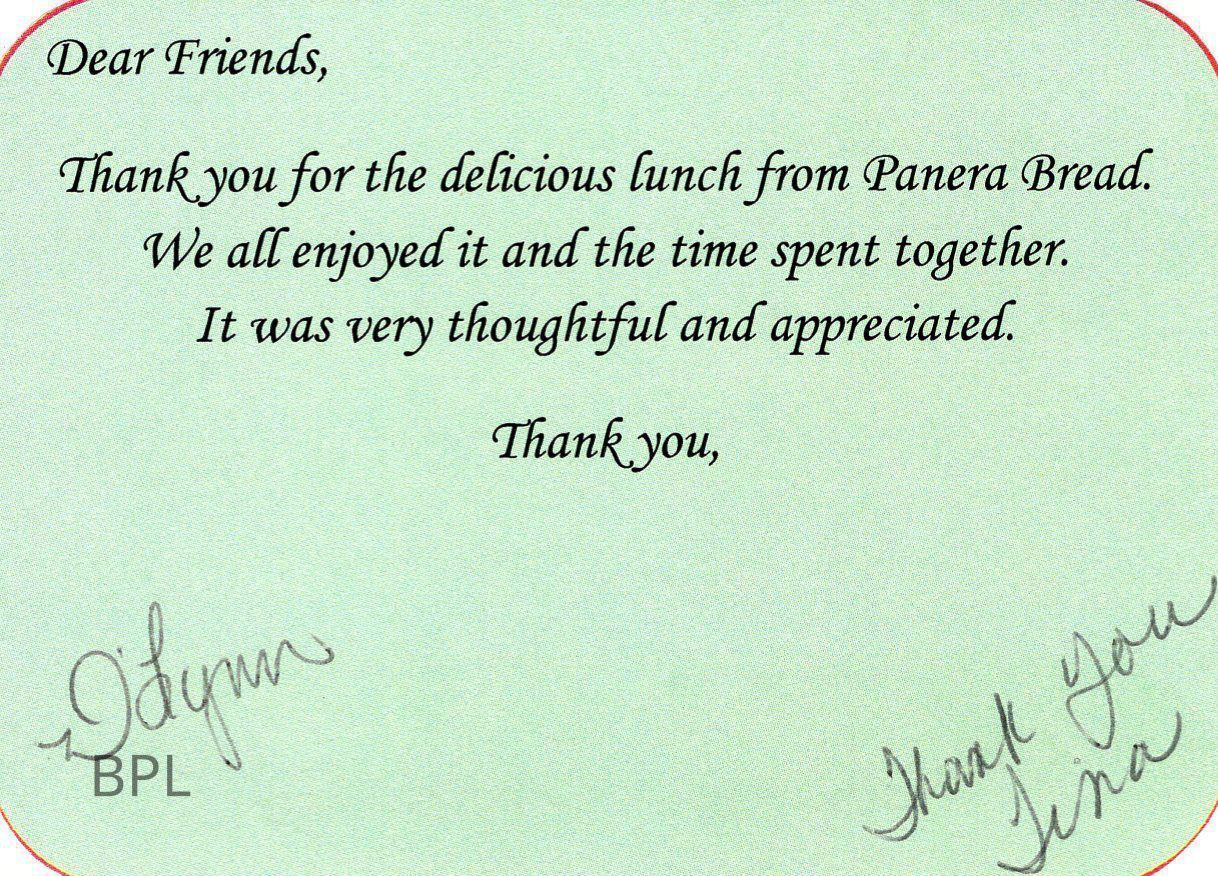 Dear Friends,
Thank you for the delicious lunch from Panera Bread.
We all enjoyed it and the time spent together.
It was very thoughtful and appreciated.
Thank you,
D'Lynn
BPL
Thank You
Tina